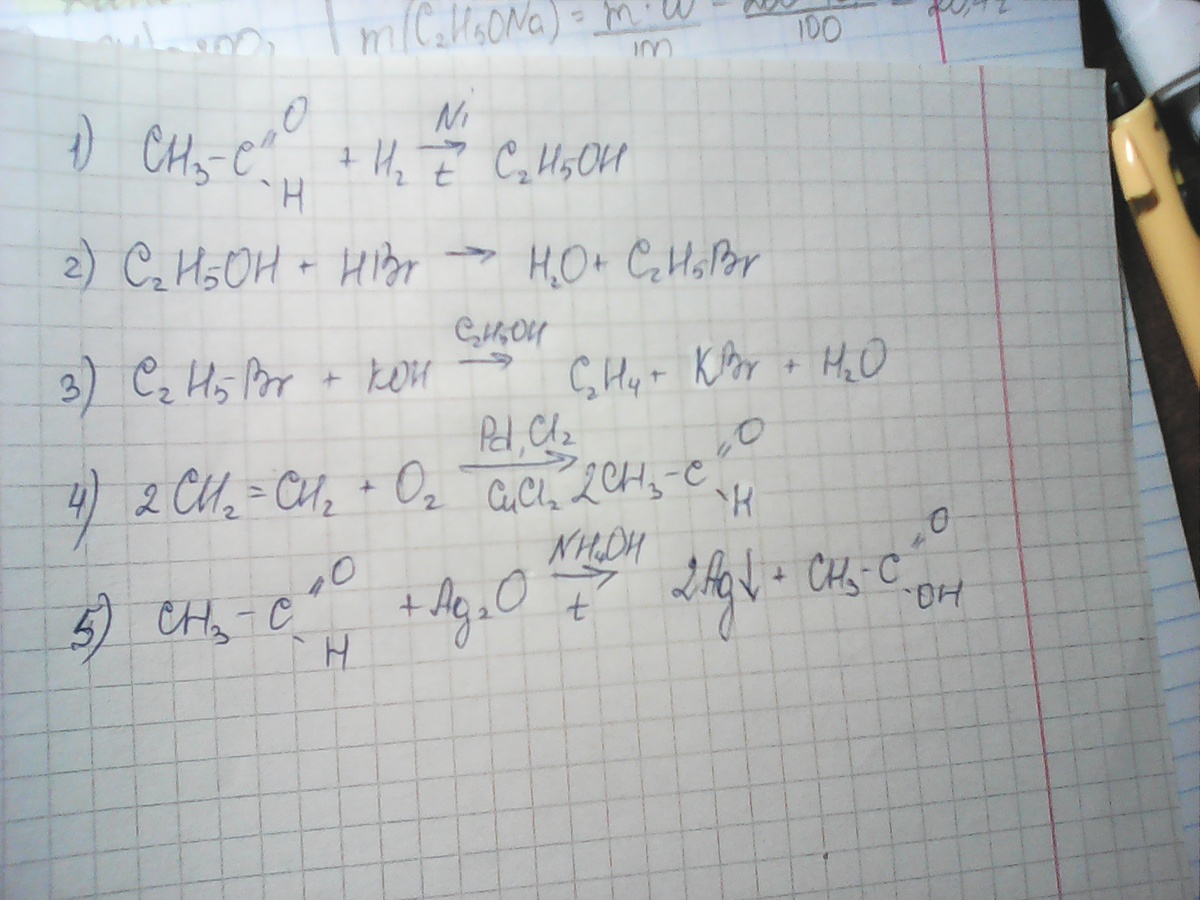 m(C₂H₅ONa) = m·ω / m = / 100 =
1) CH₃-C(=O)-H + H₂ →(Ni, t) C₂H₅OH
2) C₂H₅OH + HBr → H₂O + C₂H₅Br
3) C₂H₅Br + KOH →(C₂H₅OH) C₂H₄ + KBr + H₂O
4) 2CH₂=CH₂ + O₂ →(Pd, Cl₂, CuCl₂) 2CH₃-C(=O)-H
5) CH₃-C(=O)-H + Ag₂O →(NH₄OH, t) 2Ag↓ + CH₃-C(=O)-OH